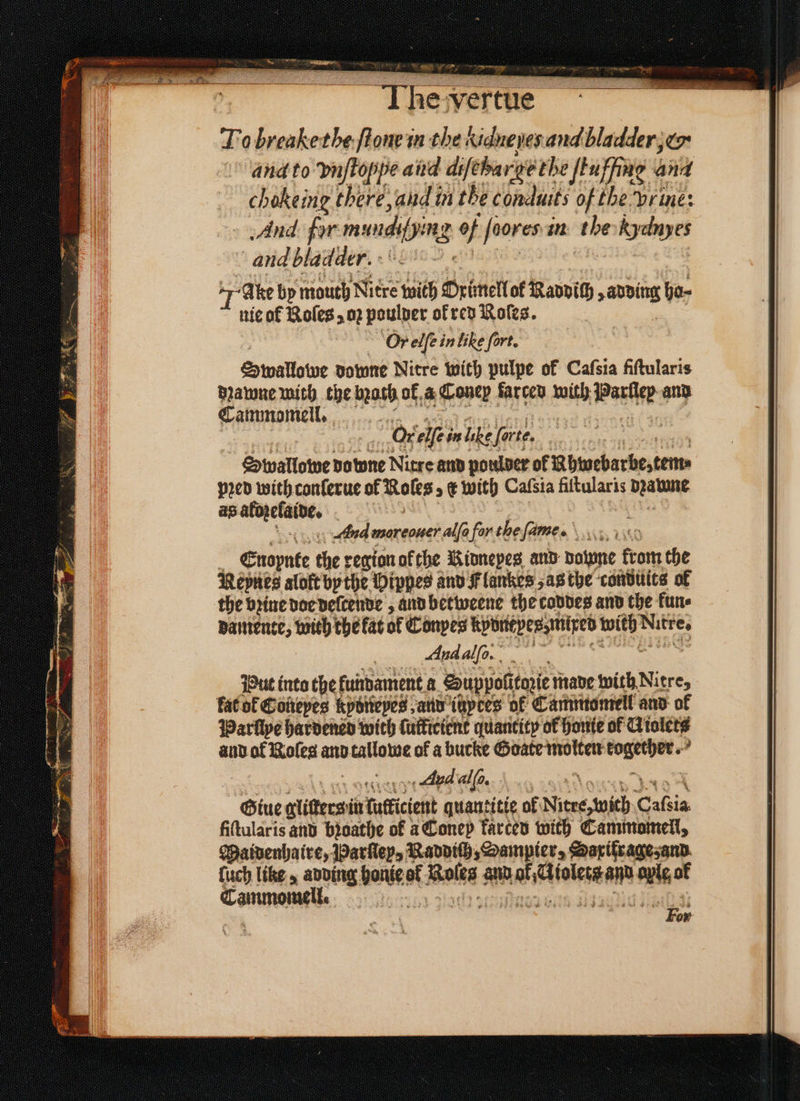 The vertue
To breake the ſtone in the kidneyes and bladder, &
and to vnſtoppe and diſcharge the ſtuffing and
chokeing there, and in the conduits of the vrine:
And for mundifying of ſoores in the kydnyes
and bladder.
TAke by mouth Nitre with Oximell of Raddiſh, adding ho-
nie of Roſes, oꝛ poulder of red Roſes.
Or elſe in like ſort.
Swallowe downe Nitre with pulpe of Caſsia fiſtularis
dꝛawne with the bꝛoth of a Coney farced with Parſley and
Cammomell.
Or elſe in like ſorte.
Swallowe downe Nitre and poulder of Rhwebarbe, tem-
pꝛed with conſerue of Roſes, & with Caſsia fiſtularis dꝛawne
as afoꝛeſaide.
And moreouer alſo for the ſame.
Enoynte the region of the Kidneyes and downe from the
Reynes aloft by the Hippes and Flankes, as the conduits of
the vꝛine doe deſcende, and betweene the coddes and the fun-
damente, with the fat of Conyes kydneyes, mixed with Nitre.
And alſo.
Put into the fundament a Suppoſitoꝛie made with Nitre,
fat of Coneyes kydneyes, and iuyces of Cammomell and of
Parſlye hardened with ſufficient quantity of honie of Violets
and of Roſes and tallowe of a bucke Goate molten together.
And alſo.
Giue gliſters in ſufficient quantitie of Nitre, with Caſsia
fiſtularis and bꝛoathe of a Coney farced with Cammomell,
Maidenhaire, Parſley, Raddiſh, Sampier, Saxifrage, and
ſuch like, adding honie of Roſes and of Violets and oyle of
Cammomell.
For